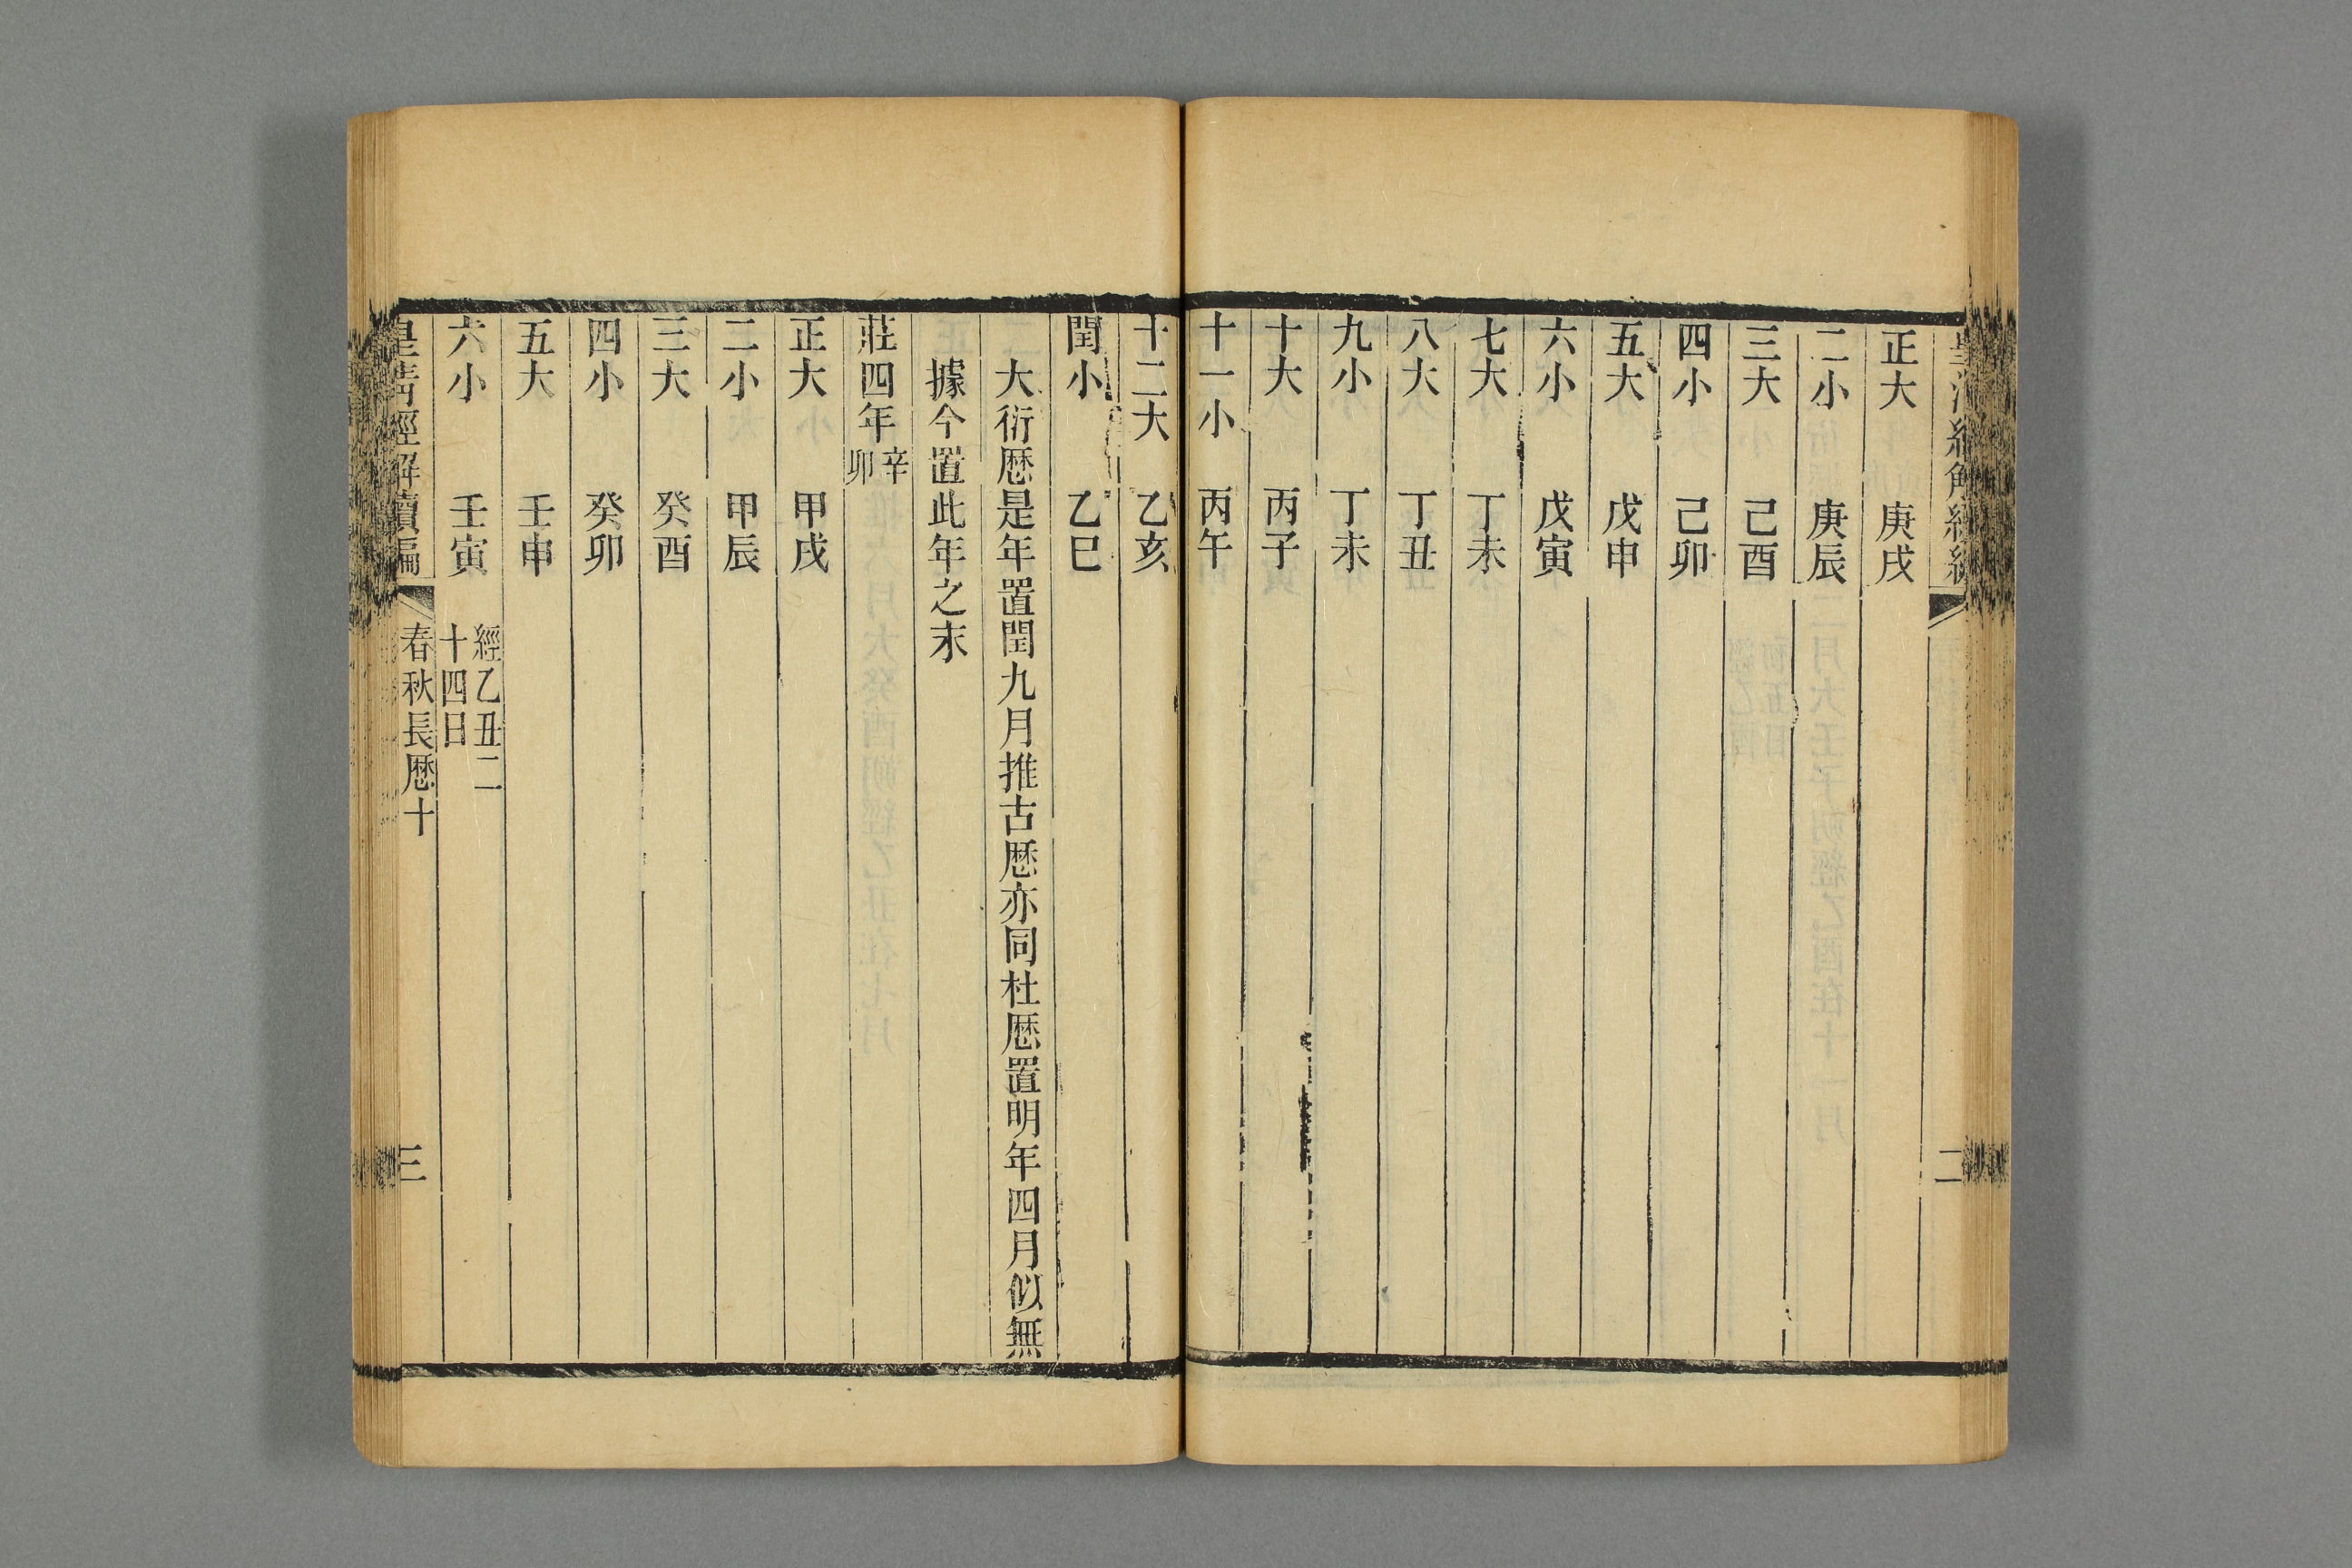 二
正大　庚戌
二小　庚辰
三大　己酉
四小　己卯
五大　戊申
六小　戊寅
七大　丁未
八大　丁丑
九小　丁未
十大　丙子
十一小　丙午
十二大　乙亥
閏小　乙巳
大衍厯是年置閏九月推古厯亦同杜厯置明年四月似無
據今置此年之末
莊四年辛
卯
正大　甲戌
二小　甲辰
三大　癸酉
四小　癸卯
五大　壬申
六小　壬寅　經乙丑二
十四日
皇清經解續編　春秋長厯十　三